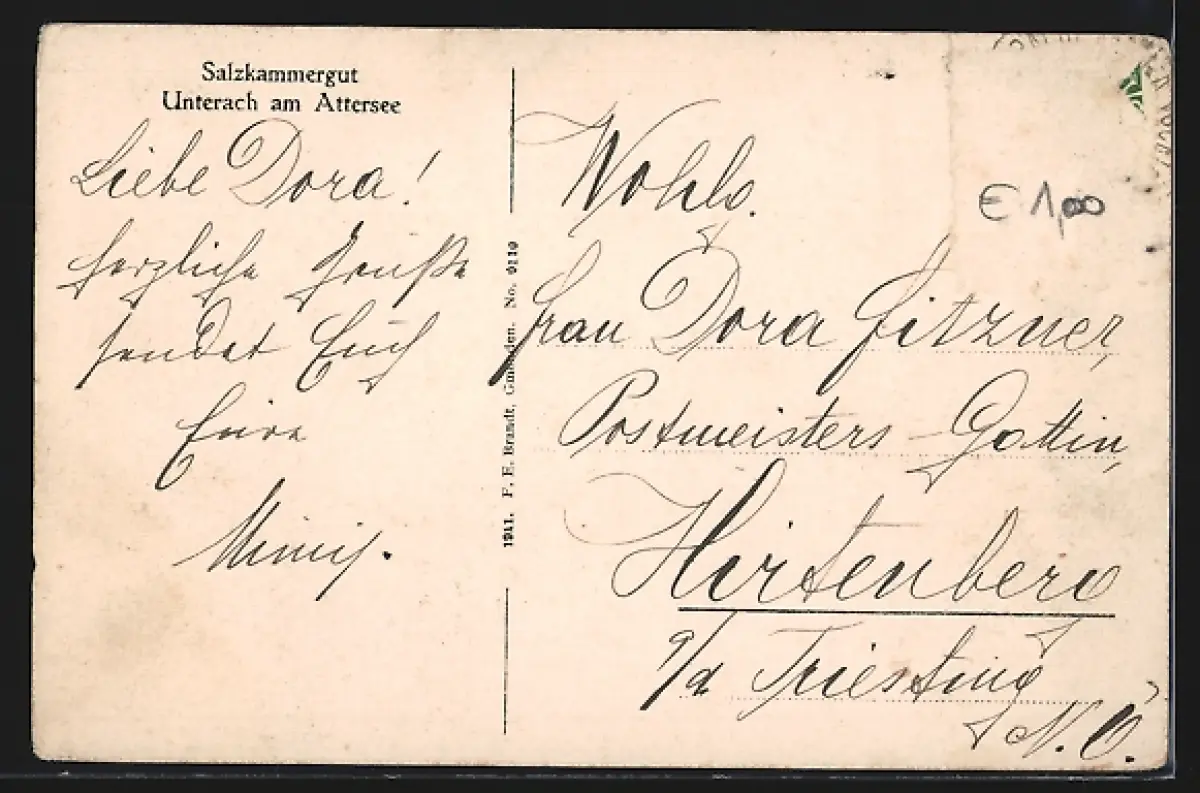 Salzkammergut
Unterach am Attersee
Liebe Dora!
herzliche Grüße
sendet Euch
Eure
Mimi.
1941. F. E. Brandt, Gmunden. No. 9110
Wohlg.
Frau Dora Fitzner,
Postmeisters-Gattin,
Hirtenberg
a/d Triesting
N. Ö.
€ 1,00